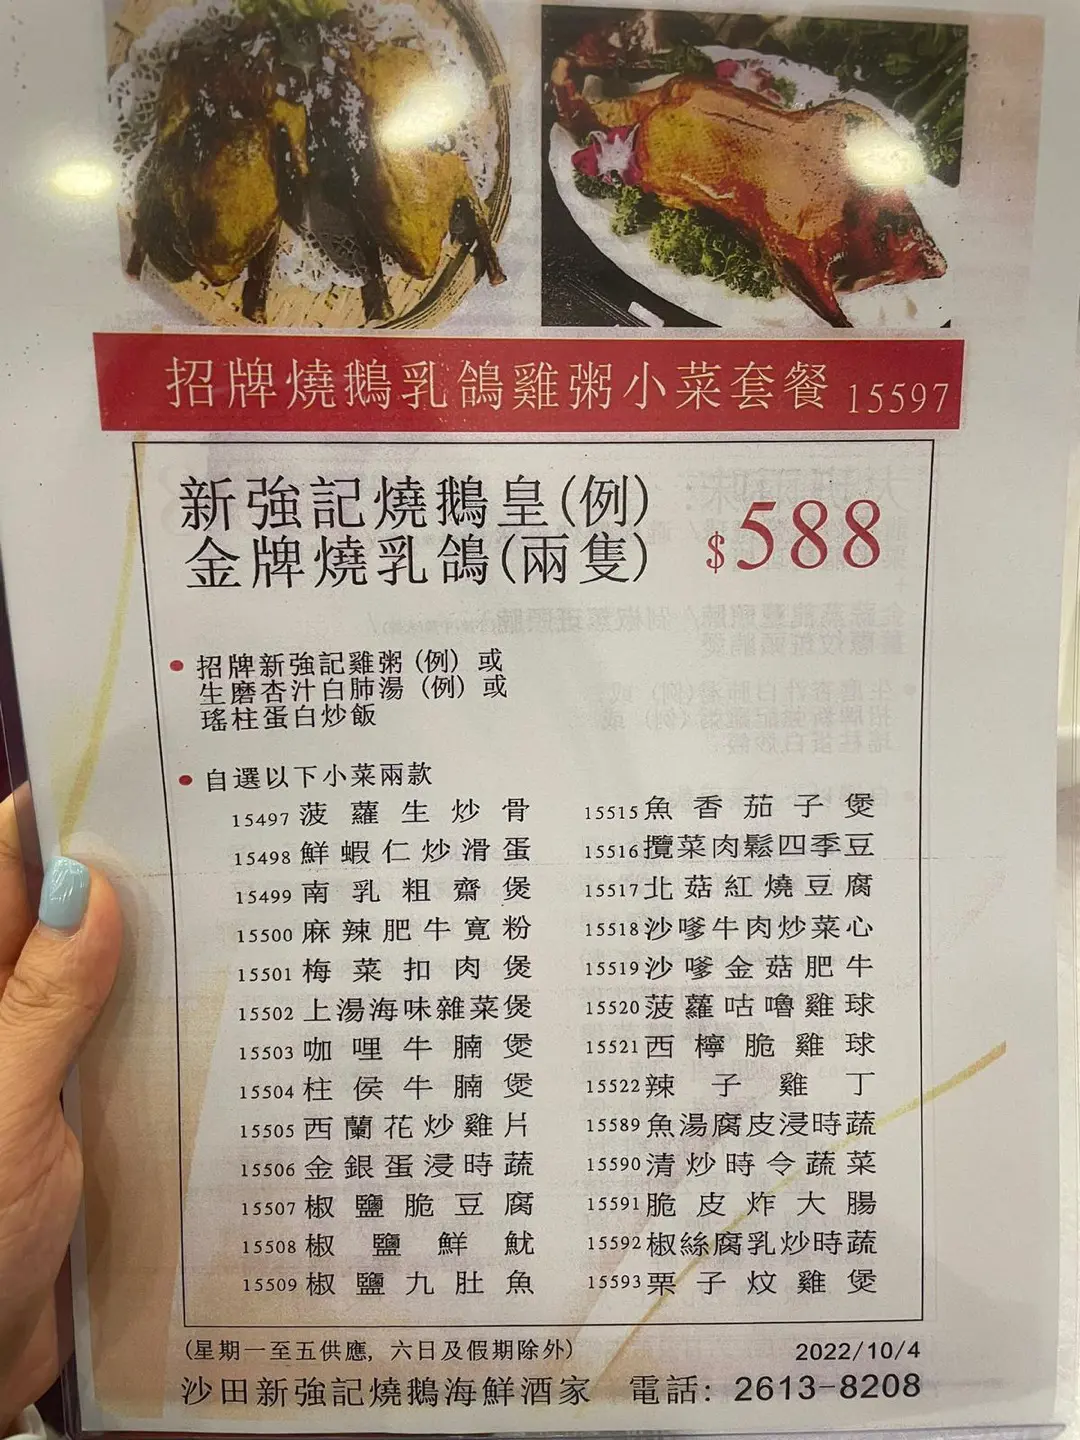 招牌燒鵝乳鴿雞粥小菜套餐 15597
新強記燒鵝皇(例)
金牌燒乳鴿(兩隻)
$588
• 招牌新強記雞粥 (例) 或
生磨杏汁白肺湯 (例) 或
瑤柱蛋白炒飯
• 自選以下小菜兩款
15497 菠蘿生炒骨
15498 鮮蝦仁炒滑蛋
15499 南乳粗齋煲
15500 麻辣肥牛寬粉
15501 梅菜扣肉煲
15502 上湯海味雜菜煲
15503 咖哩牛腩煲
15504 柱侯牛腩煲
15505 西蘭花炒雞片
15506 金銀蛋浸時蔬
15507 椒鹽脆豆腐
15508 椒鹽鮮魷
15509 椒鹽九肚魚
15515 魚香茄子煲
15516 攬菜肉鬆四季豆
15517 北菇紅燒豆腐
15518 沙嗲牛肉炒菜心
15519 沙嗲金菇肥牛
15520 菠蘿咕嚕雞球
15521 西檸脆雞球
15522 辣子雞丁
15589 魚湯腐皮浸時蔬
15590 清炒時令蔬菜
15591 脆皮炸大腸
15592 椒絲腐乳炒時蔬
15593 栗子炆雞煲
(星期一至五供應, 六日及假期除外)
2022/10/4
沙田新強記燒鵝海鮮酒家 電話: 2613-8208